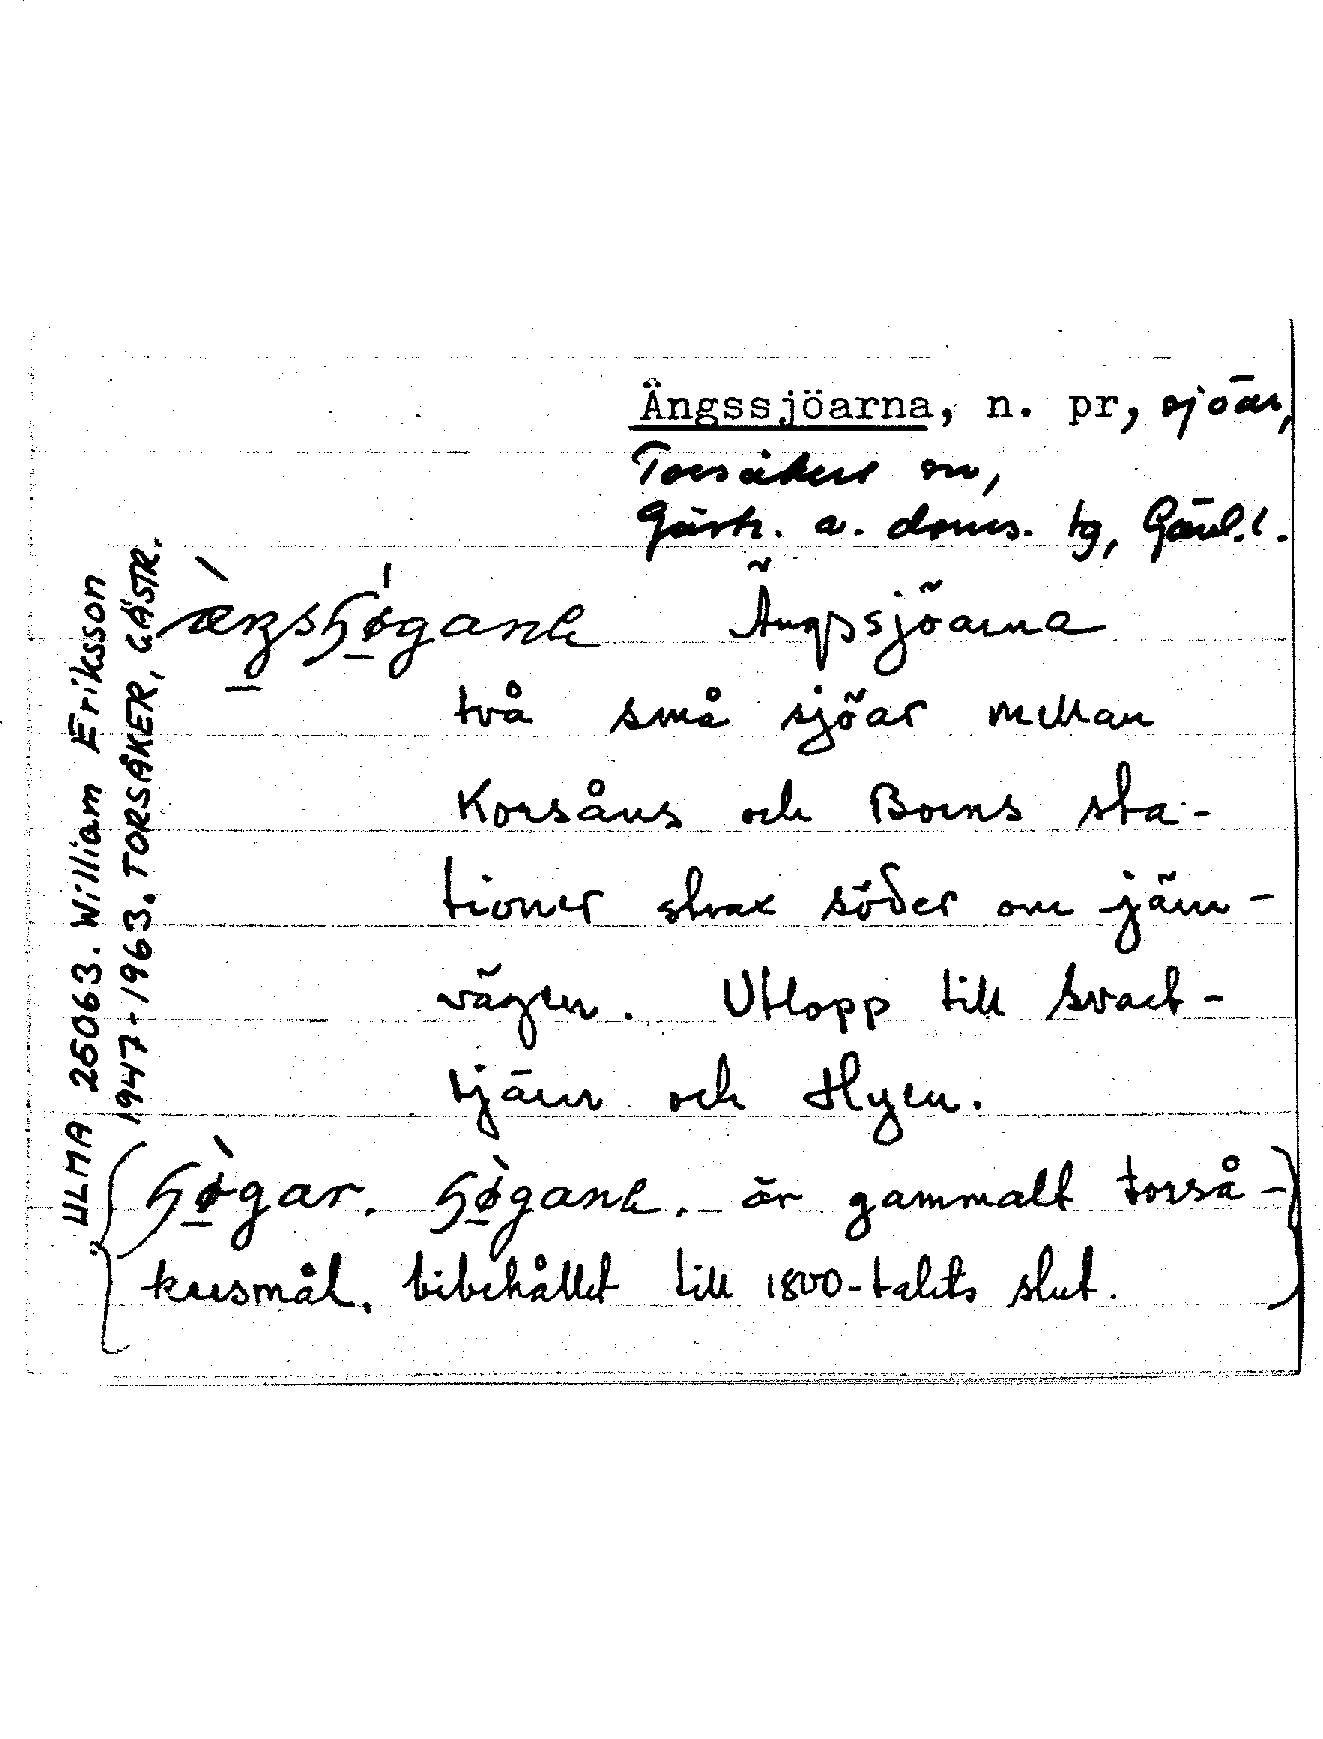 Ängssjöarna, n. pr, sjöar,
Torsåkers sn,
Gästr. ö. doms. tg, Gävl. l.
Ängssjöarna
två små sjöar mellan
Korsåns och Borns sta-
tioner strax söder om järn-
vägen. Utlopp till Svart-
tjärn och Hyen.
är gammalt torså-
kersmål, bibehållet till 1800-talets slut.
ULMA 25063. William Eriksson
1947-1963. TORSÅKER, GÄSTR.